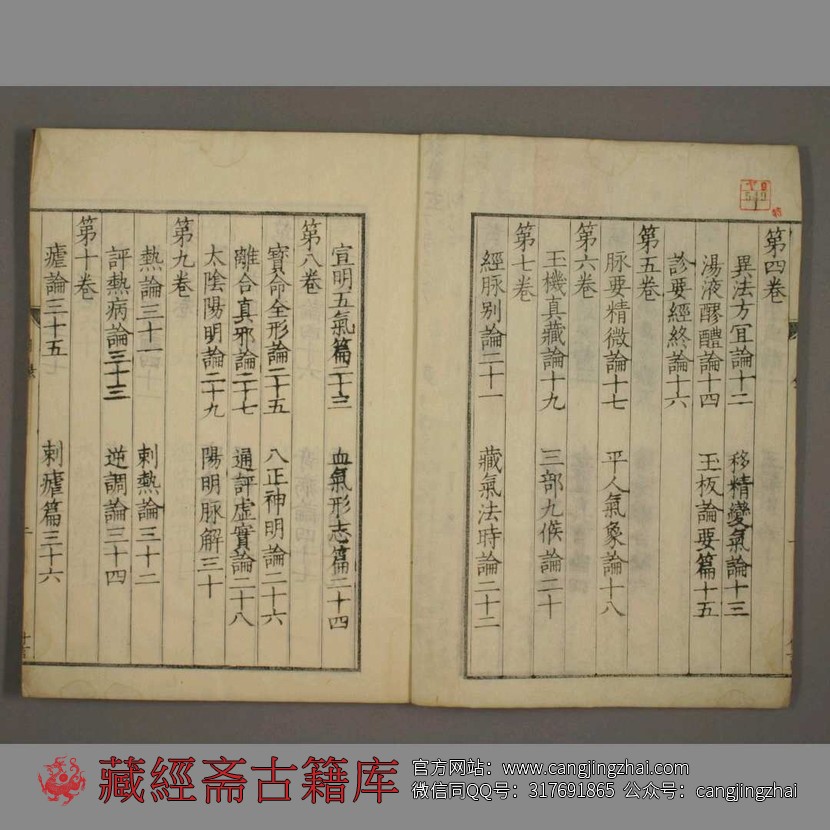 第四卷
異法方冝論十二 移精變氣論十三
湯液醪醴論十四 玉板論要篇十五
診要經終論十六
第五卷
脉要精微論十七 平人氣象論十八
第六卷
玉機真藏論十九 三部九候論二十
第七卷
經脉别論二十一 藏氣法時論二十二
宣明五氣篇二十三 血氣形志篇二十四
第八卷
寶命全形論二十五 八正神明論二十六
離合真邪論二十七 通評虛實論二十八
太陰陽明論二十九 陽明脉解三十
第九卷
熱論三十一 刺熱論三十二
評熱病論三十三 逆調論三十四
第十卷
瘧論三十五 刺瘧篇三十六
藏經斋古籍库
官方网站：www.cangjingzhai.com
微信同QQ号：317691865 公众号：cangjingzhai